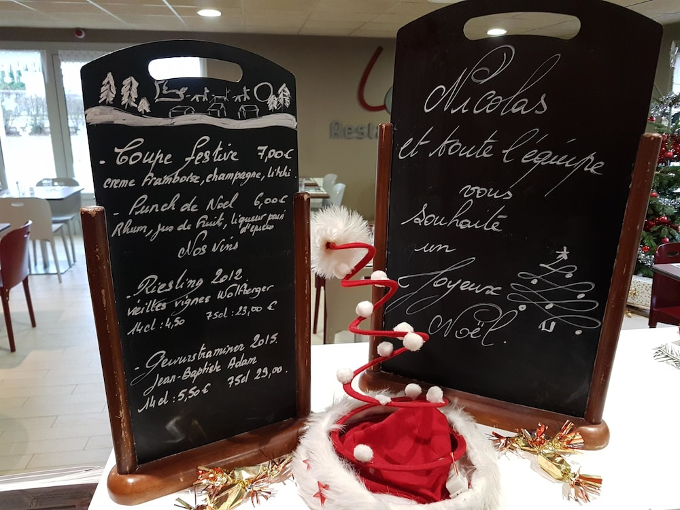 - Coupe festive 7,00€
creme Framboise, champagne, litchi
- Punch de Noel 6,00€
Rhum, jus de Fruits, liqueur pain
d'epices
Nos Vins
- Riesling 2012
vieilles vignes Wolfberger
14cl : 4,50 75cl : 23,00 €
- Gewurstraminer 2015
Jean-Baptiste Adam
14cl : 5,50 € 75cl 29,00.
Nicolas
et toute l'équipe
vous
souhaite
un
Joyeux
Noël.